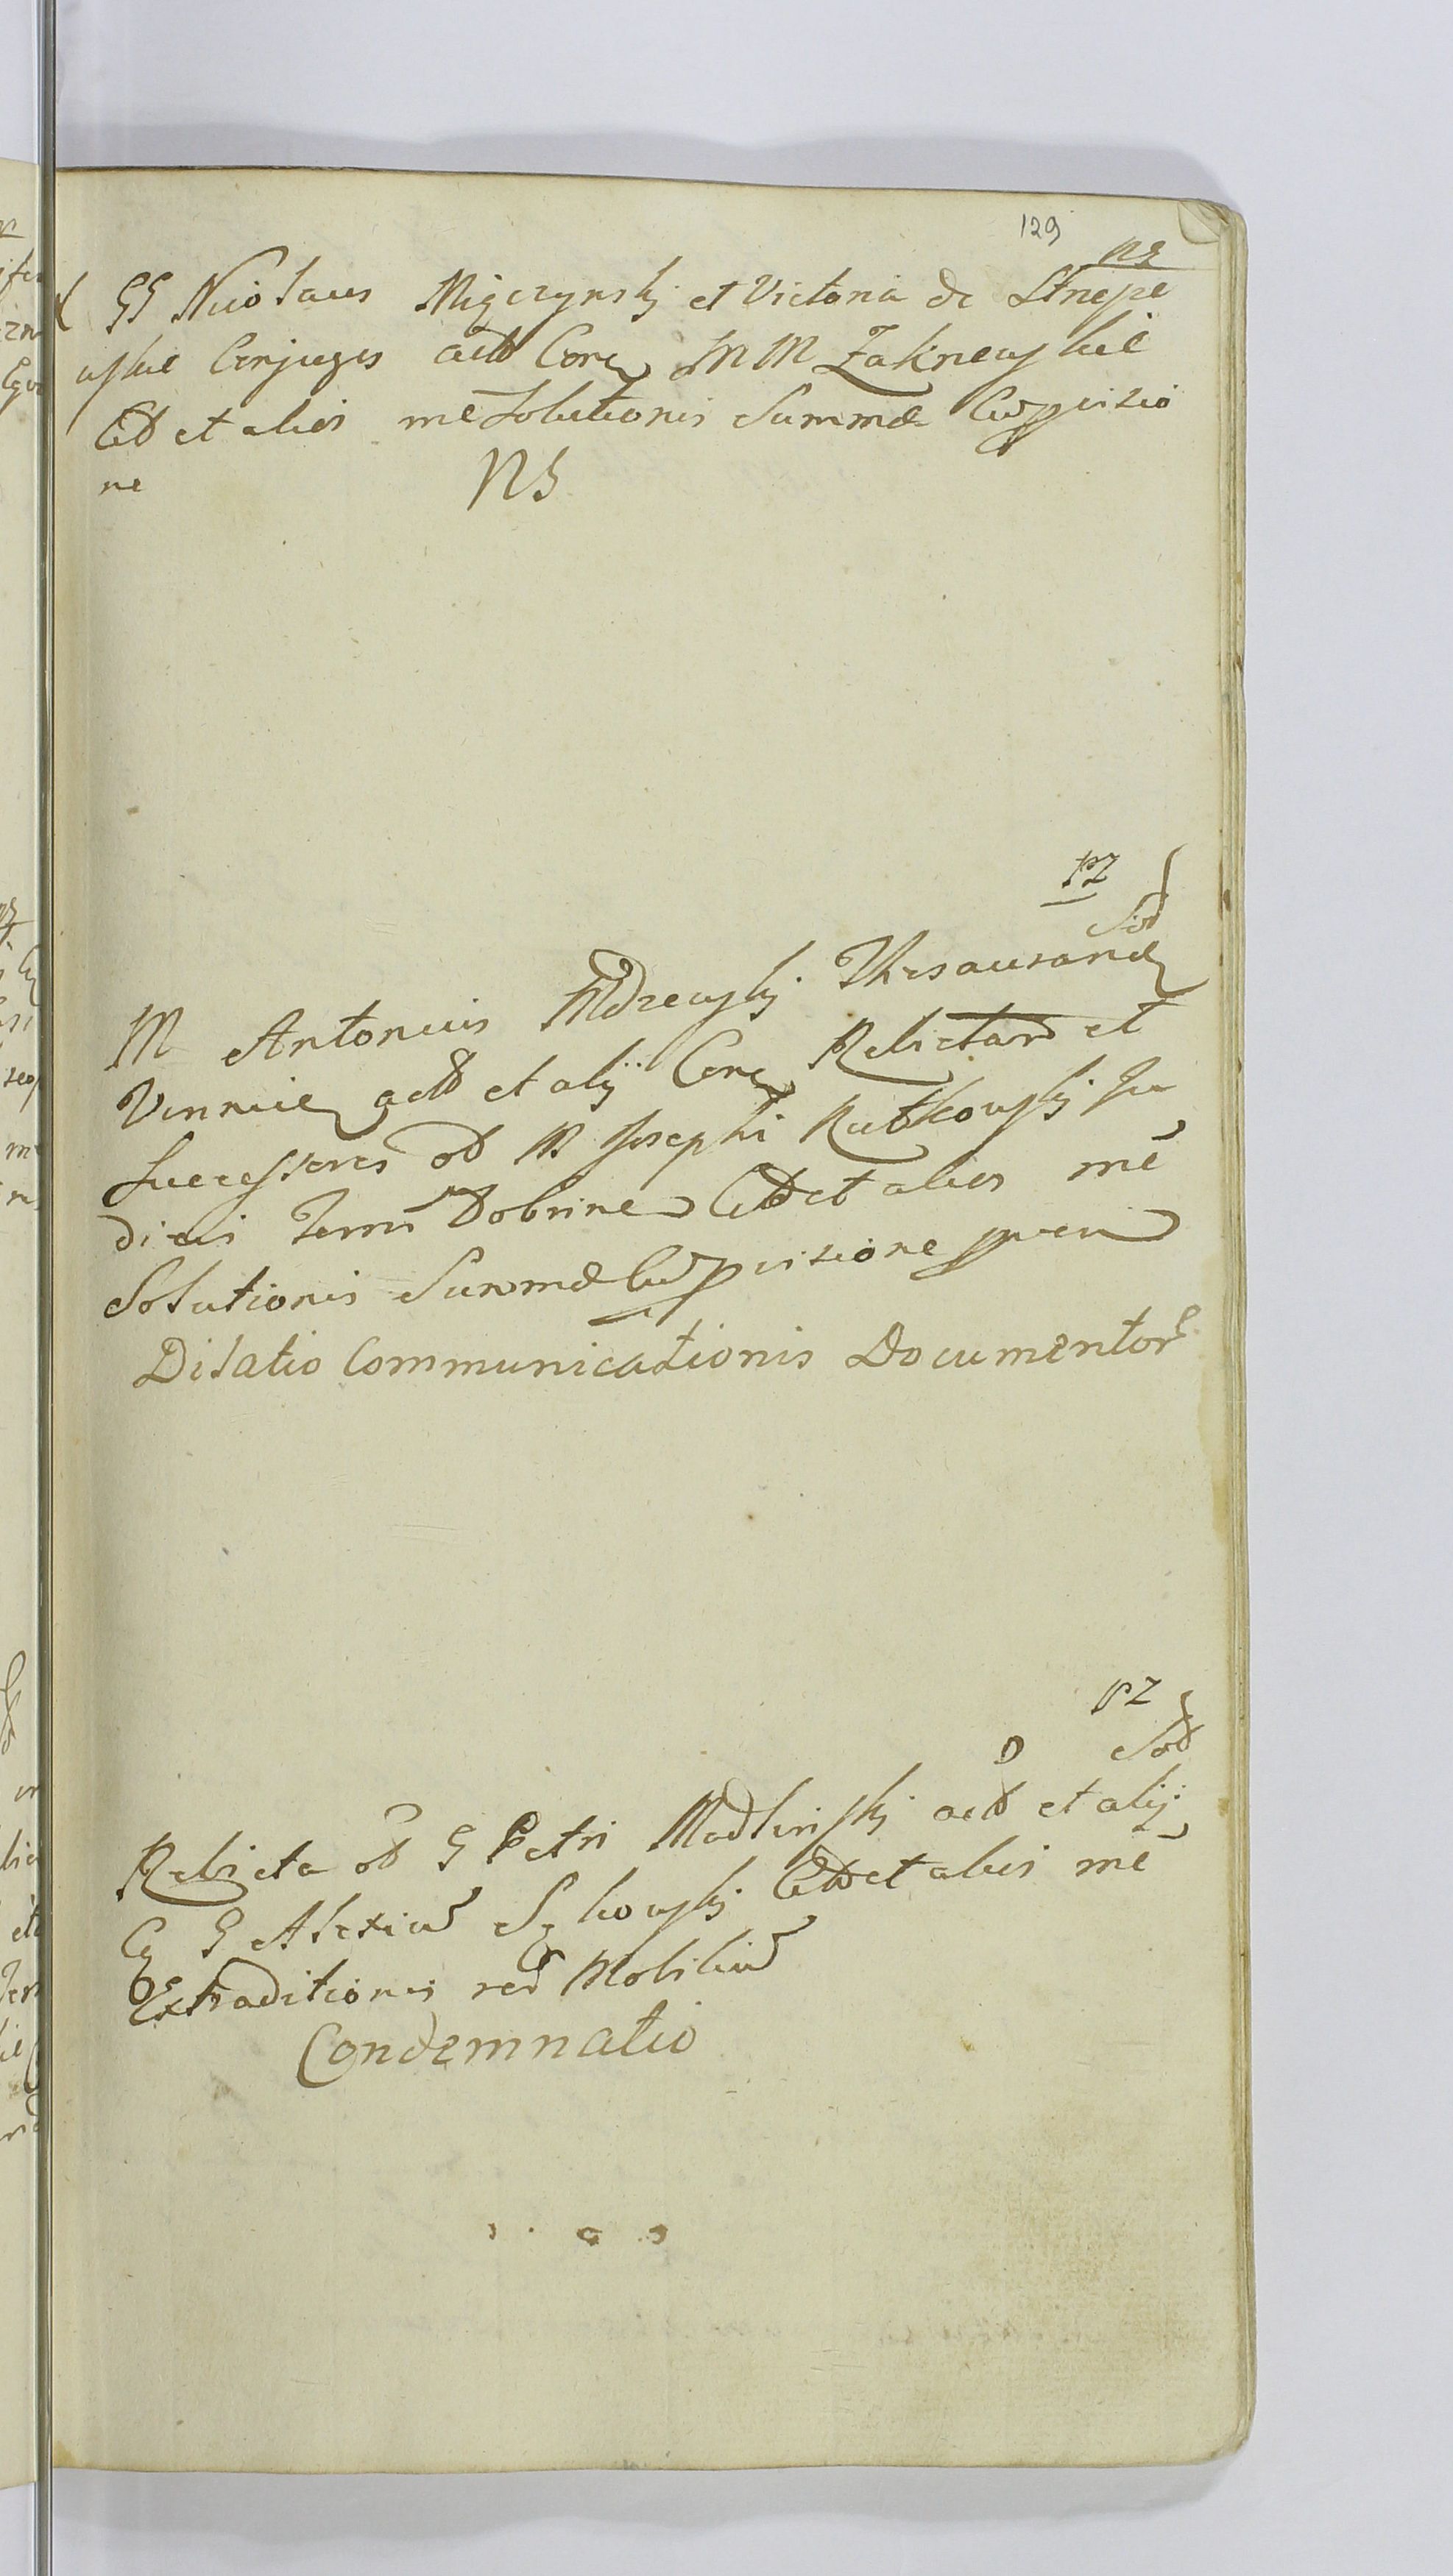 129
ns
GG Nicolaus Migczynskj et Victoria de Strzepe
wskie Conjuges actt Cora MM Zakrzewskie
Citt et alios me Solutionis Summæ Cu provisio
ne
NS
pz
Sod
M Antonius Mdzewskj Thesauraride
Vinnice actt et alij Cora Relictam et
Successores od M Josephi Rutkowskj Ju
dicis Terris Dobrine Citt et alios me
Solutionis Summæ Cu provisione
Dilatio Communicationis Documentor
pz
D Sod
Relicta od G Petri Madlinskj actt et alij
G Alexiu Citt et alios me
Extraditionis rerum Mobiliu
Condemnatio